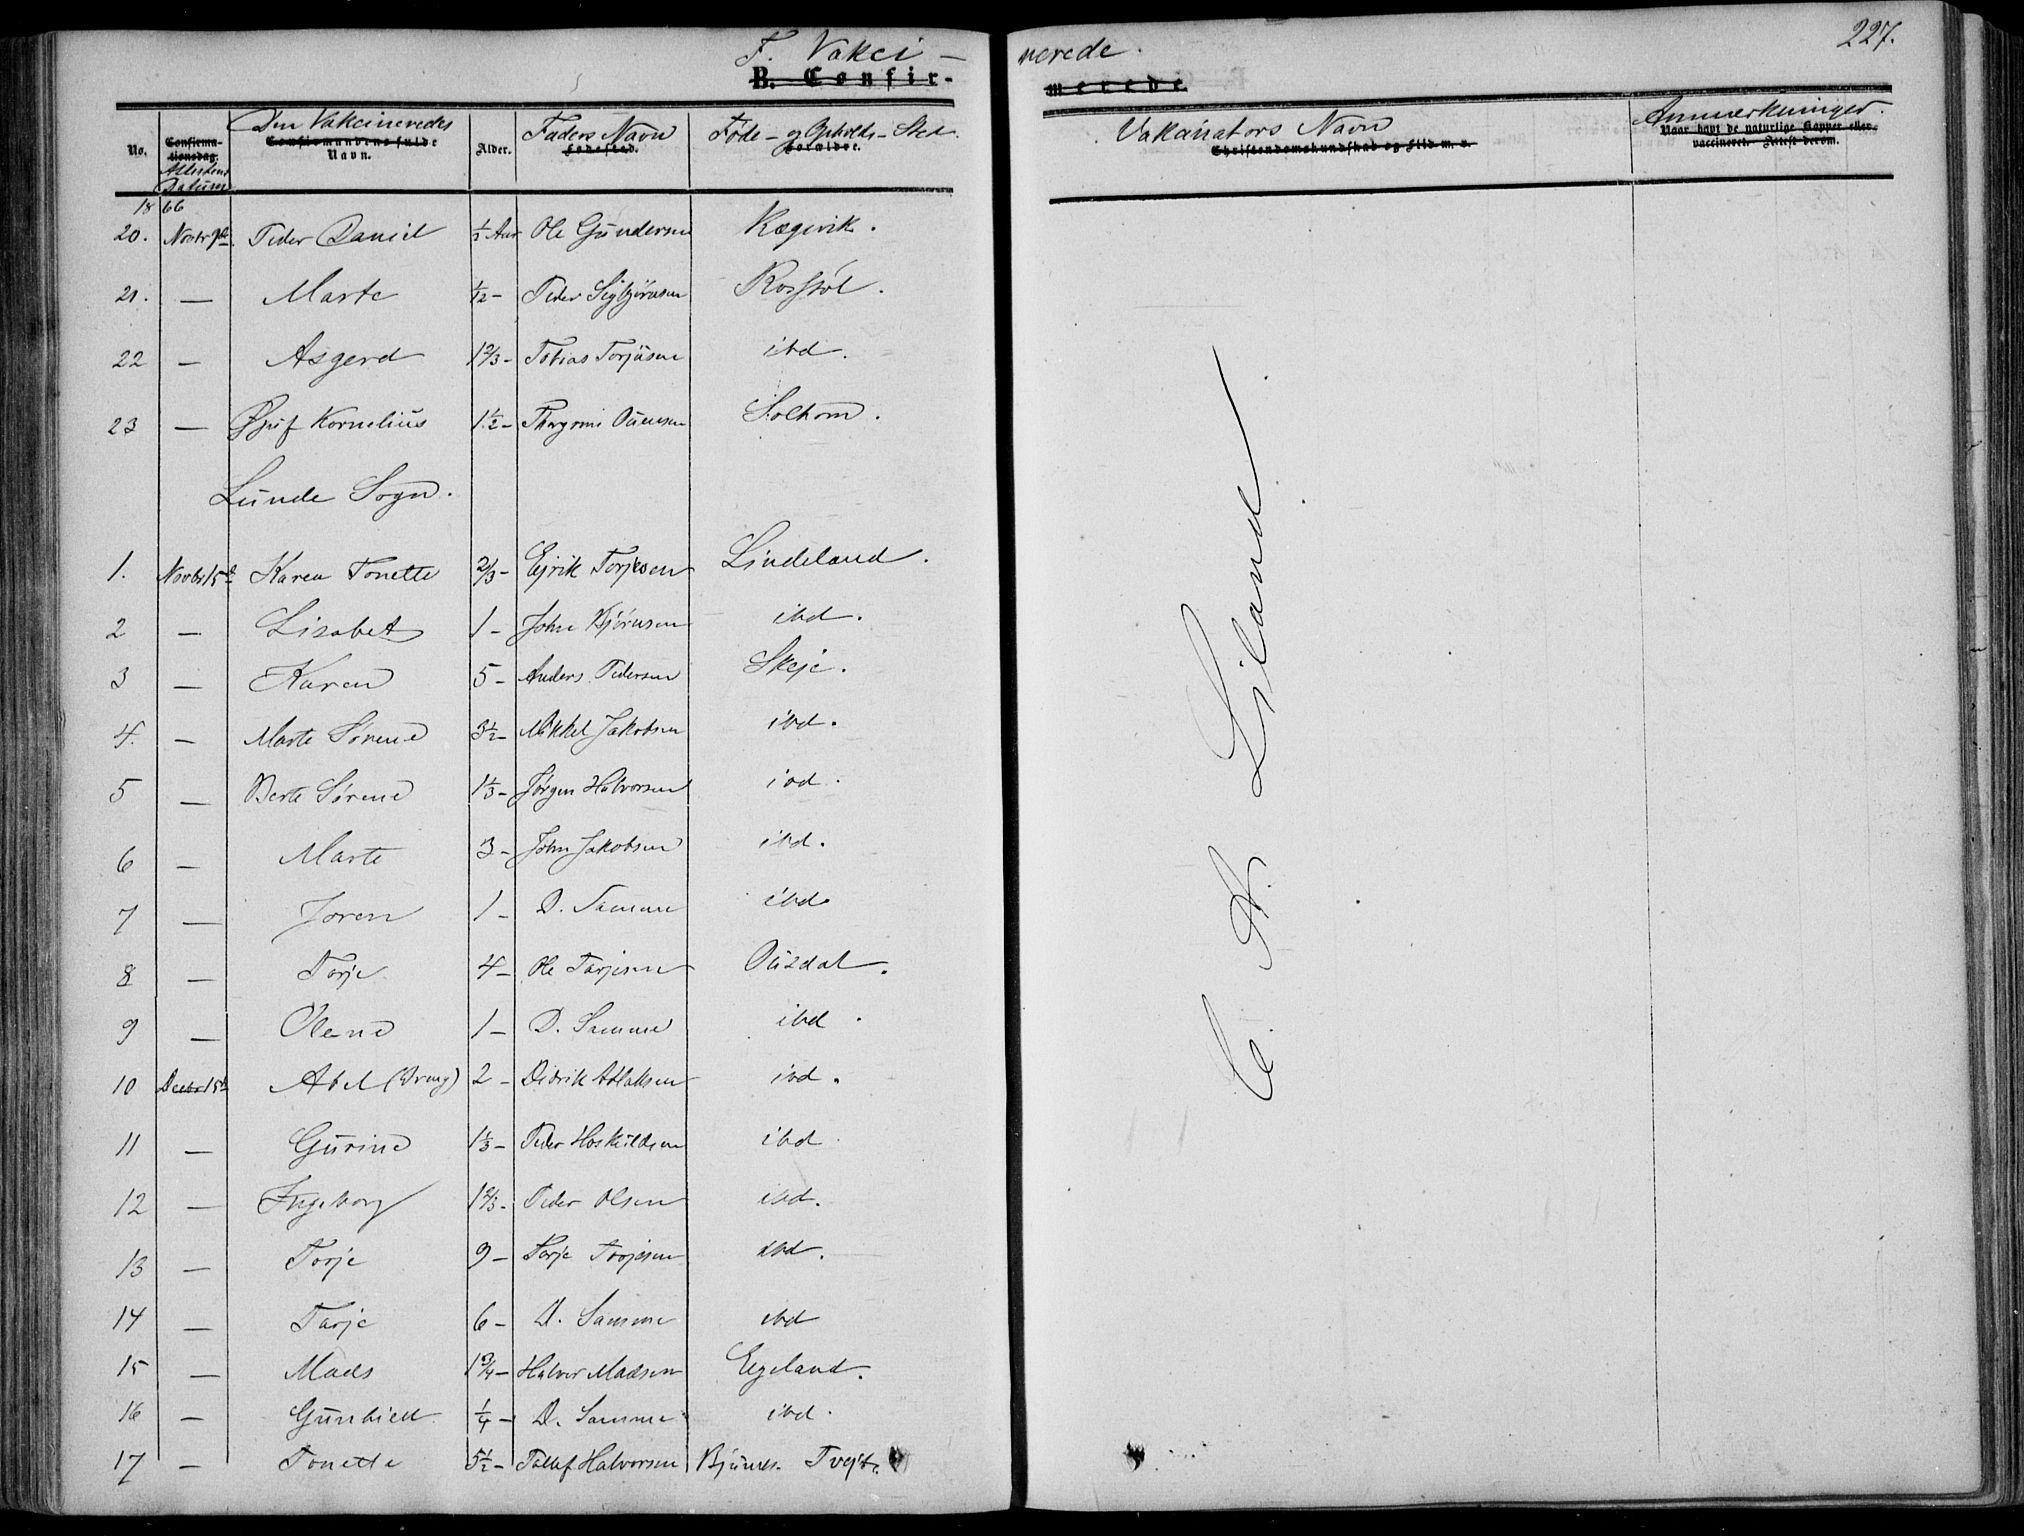 F. Vakci- nerede. 227.
B. Confir- merede.
No. Confirmationsdag. Attestens Datum Den Vakcineredes Confirmandens fulde Navn. Alder. Faders Navn Fødested. Føde- og Opholds-Sted. Forældre. Vakcinators Navn Christendomskundskab og Flid m. v. Anmærkninger. Naar havt de naturlige Kopper eller vaccineret. Attest derom.
1866
20. Novbr 7de Peder Daniel ½ Aar Ole Gundersen Kægevik.
21. — Marte 1/12 - Peder Sigbjørnsen Rosstøl.
22 — Asgerd 1 2/3 - Tobias Torjusen ibd.
23 — Kornelius 1½ - Ouensen Solhom.
Lunde Sogn.
1. Novbr 15de Karen Tonette 2/3 - Ejrik Torjesen Lindeland.
2 — Lisabet 1 - John Bjørnsen ibd.
3 — Karen 5 - Anders Pedersen Skeje.
4. — Marte Sørene 3½ - Mikkel Jakobsen ibd.
5 — Berte Sørene 1 1/3 - Jørgen Halvorsen ibd.
6 — Marte 3 - John Jakobsen ibd.
7 — Joren 1 - D. Samme ibd.
8 — Torje 4 - Ole Torjesen Ousdal.
9 — Olene 1 - D. Samme ibd.
10 Decbr 15de Abel (Dreng) 2 - Didrik Atlaksen ibd.
11 — Gurine 1 1/3 - Peder Hoskildsen ibd
12 — Ingeborg 1 2/3 - Peder Olsen ibd.
13 — Torje 9 - Torje Torjesen ibd.
14 — Tarje 6 - D. Samme ibd
15 — Mads 1 3/4 - Halvor Madsen Egeland.
16 — Gunhild ¼ - D. Samme ibd.
17 — Tonette 5½ - Tollef Halvorsen Bjunes. Tvejt.
C. A. Ejland